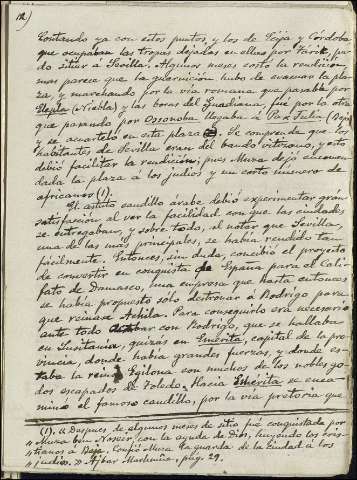 12)
Contando ya con estos puntos, y los de Écija y Córdoba
que ocupaban las tropas dejadas en ellos por Tárik, pu-
do sitiar á Sevilla. Algunos meses costó la rendición,
mas parece que la guarnición hubo de evacuar la pla-
za, y marchando por la vía romana que pasaba por
Ilepla (Niebla) y las bocas del Guadiana, fué por la otra
que pasando por Ossonoba llegaba á Pax Julia (Beja)
y se acuarteló en esta plaza. Se comprende que los
habitantes de Sevilla eran del bando vitizano, y esto
debió facilitar la rendición; pues Muza dejó encomen-
dada la plaza á los judíos y un corto número de
africanos (1).
El astuto caudillo árabe debió experimentar gran
satisfacción al ver la facilidad con que las ciudades
se entregaban, y sobre todo, al notar que Sevilla,
una de las más principales, se había rendido tan
fácilmente. Entonces, sin duda, concibió el proyecto
de convertir en conquista de España para el Cali-
fato de Damasco, una empresa que hasta entonces
se había propuesto sólo destronar á Rodrigo para
que reinase Achila. Para conseguirlo era necesario
ante todo acabar con Rodrigo, que se hallaba
en Lusitania, quizás en Emérita, capital de la pro-
vincia, donde había grandes fuerzas, y donde es-
taba la reina Egilona con muchos de los nobles go-
dos escapados de Toledo. Hacia Emérita se enca-
minó el famoso caudillo, por la vía pretoria que
(1). « Después de algunos meses de sitio fué conquistada por
» Muza ben Noseir, con la ayuda de Dios, huyendo los cris-
» tianos a Beja. Confió Muza la guarda de la ciudad á los
» judíos. » Ajbar Machmuâ, pág. 29.